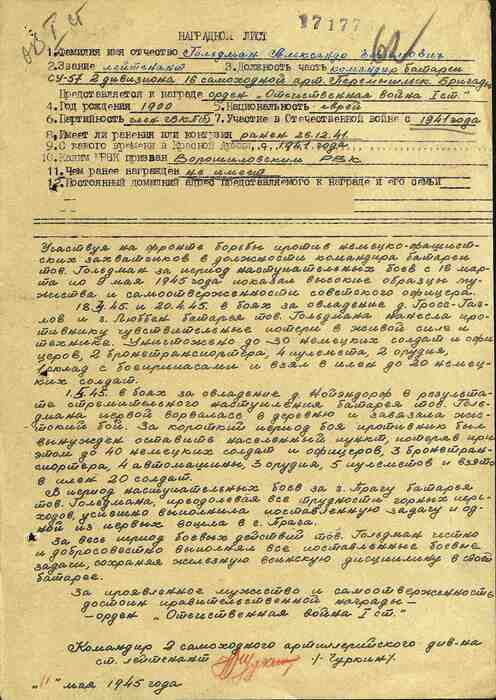 17177
НАГРАДНОЙ ЛИСТ
1. Фамилия имя отчество Гольдман Александр
2. Звание лейтенант 3. Должность часть командир батареи
СУ-57 2 дивизиона 16 самоходной арт. Перемышльск. Бригады
Представляется к награде орден „Отечественная война I ст."
4. Год рождения 1900 5. Национальность еврей
6. Партийность член ВКПб 7. Участие в Отечественной войне с 1941 года
8. Имеет ли ранения или контузии ранен 26.12.41.
9. С какого времени в Красной Армии с 1941 года.
10. Каким РВК призван Ворошиловским РВК
11. Чем ранее награжден не имеет
12. Постоянный домашний адрес представляемого к награде и его семьи
Участвуя на фронте борьбы против немецко-фашист-
ских захватчиков в должности командира батареи
тов. Гольдман за период наступательных боев с 16 марта
по 9 мая 1945 года показал высокие образцы му-
жества и самоотверженности советского офицера.
18.4.45. и 20.4.45. в боях за овладение д. Гросс-Гаг-
лов и г. Люббен батарея тов. Гольдмана нанесла про-
тивнику чувствительные потери в живой силе и
технике. Уничтожено до 30 немецких солдат и офи-
церов, 2 бронетранспортера, 4 пулемета, 2 орудия,
1 склад с боеприпасами и взял в плен до 20 немец-
ких солдат.
1.5.45. в боях за овладение д. Нойендорф в результа-
те стремительного наступления батарея тов. Голь-
дмана первой ворвалась в деревню и завязала жес-
токий бой. За короткий период боя противник был
вынужден оставить населенный пункт, потеряв при
этом до 40 немецких солдат и офицеров, 3 бронетран-
спортера, 4 автомашины, 3 орудия, 5 пулеметов и взято
в плен 20 солдат.
В период наступательных боев за г. Прагу батарея
тов. Гольдмана, преодолевая все трудности горных пере-
ходов, успешно выполнила поставленную задачу и од-
ной из первых вошла в г. Прага.
За весь период боевых действий тов. Гольдман честно
и добросовестно выполнял все поставленные боевые
задачи, сохраняя железную воинскую дисциплину в своей
батарее.
За проявленное мужество и самоотверженность
достоин правительственной награды –
– орден „Отечественная война I ст."
Командир 2 самоходного артиллерийского див-на
ст. лейтенант /-Чуркин/.
„11" мая 1945 года